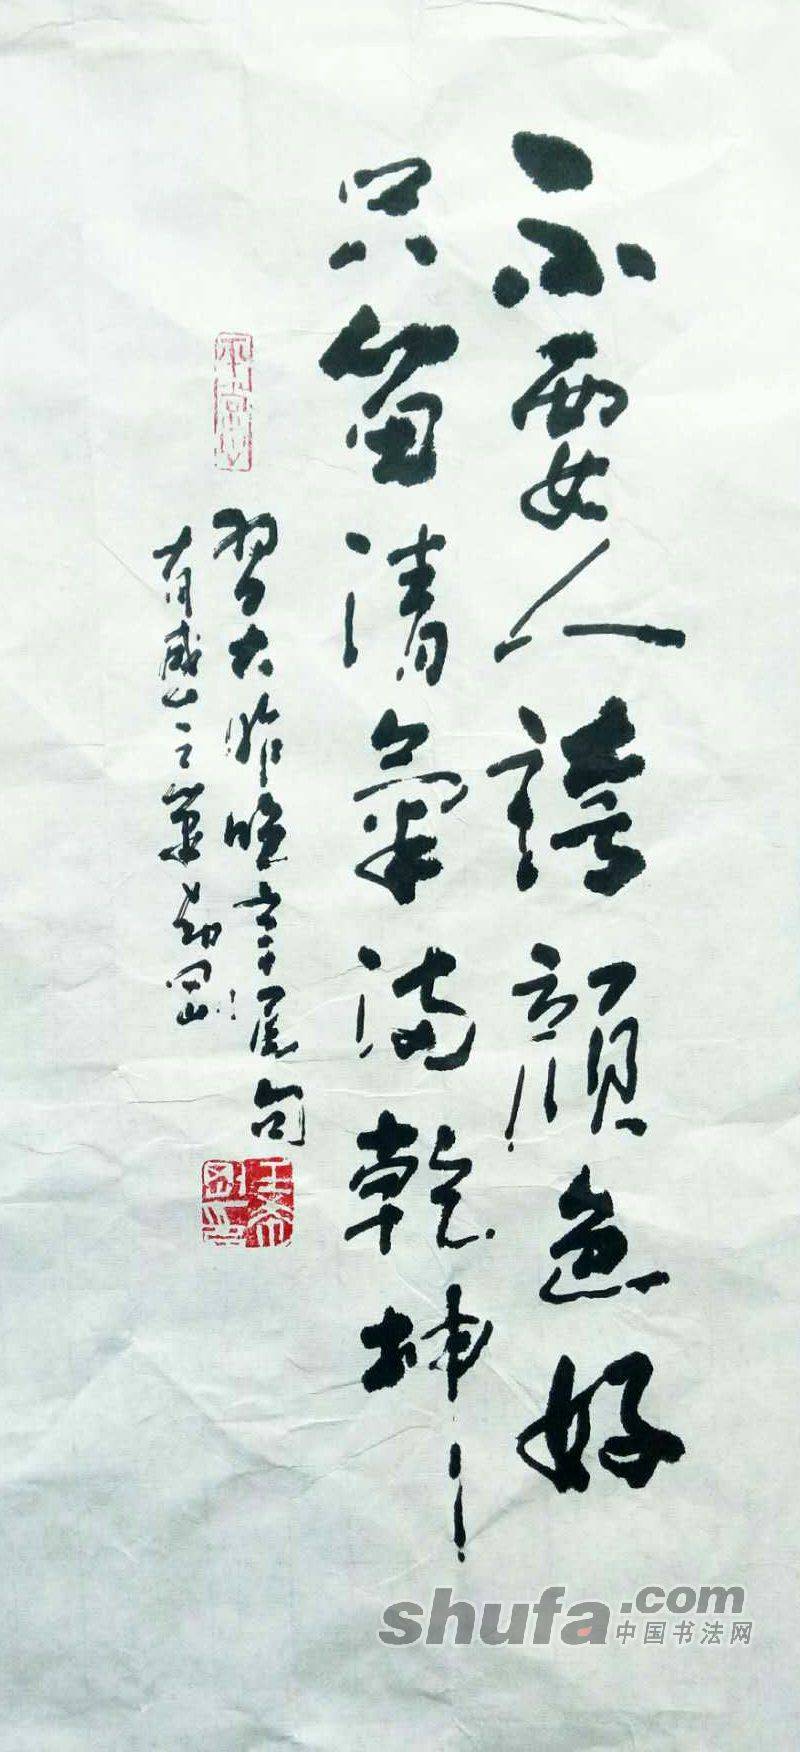 不要人誇顏色好
只留清氣滿乾坤
習大昨晚 尾句
有感 之筆 岡
shufa.com
中国书法网